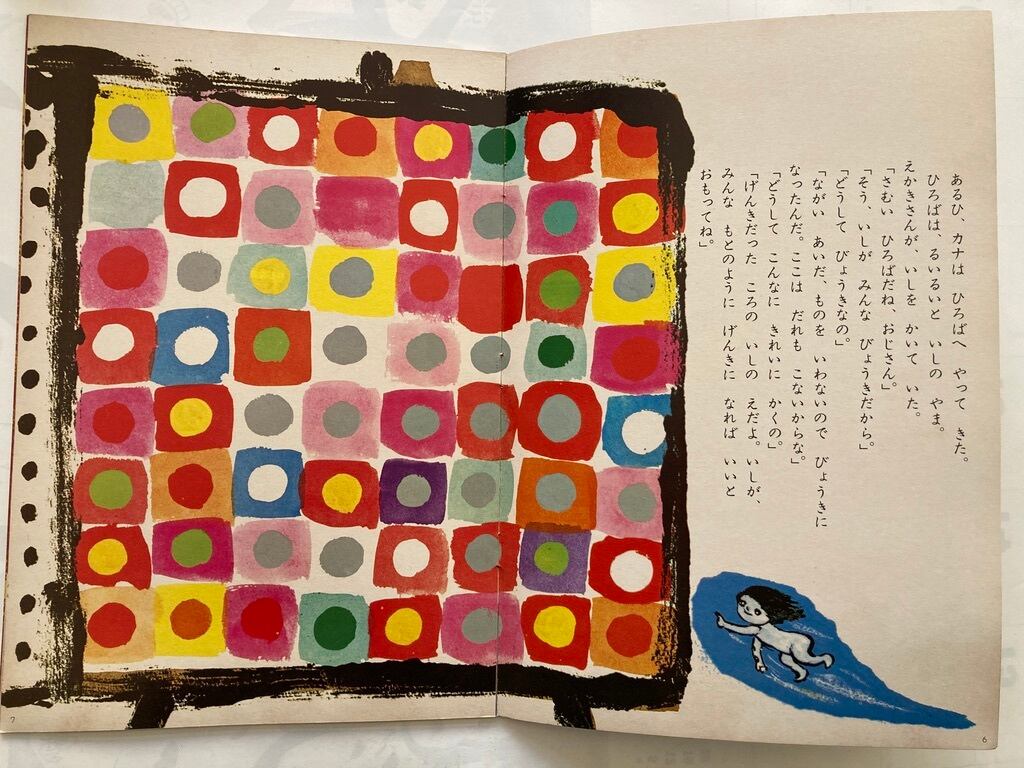 あるひ、カナは ひろばへ やって きた。
ひろばは、るいるいと いしの やま。
えかきさんが、いしを かいて いた。
「さむい ひろばだね、おじさん。」
「そう、いしが みんな びょうきだから。」
「どうして びょうきなの。」
「ながい あいだ、ものを いわないので びょうきに
なったんだ。ここは だれも こないからな。」
「どうして こんなに きれいに かくの。」
「げんきだった ころの いしの えだよ。いしが、
みんな もとのように げんきに なれば いいと
おもってね。」
6
7